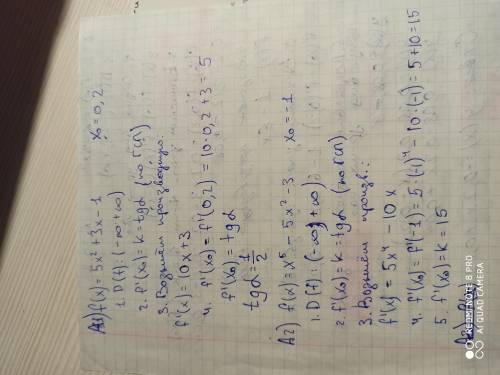 А1) f(x) = 5x² + 3x - 1 x₀ = 0,2
1. D(f): (-∞; +∞)
2. f'(x₀) = k = tgα (по ГСП)
3. Возьмём производную:
f'(x) = 10x + 3
4. f'(x₀) = f'(0,2) = 10·0,2 + 3 = 5
f'(x₀) = tgα
tgα = 1/2
А2) f(x) = x⁵ - 5x² - 3 x₀ = -1
1. D(f): (-∞; +∞)
2. f'(x₀) = k = tgα (по ГСП)
3. Возьмём произв.:
f'(x) = 5x⁴ - 10x
4. f'(x₀) = f'(-1) = 5·(-1)⁴ - 10·(-1) = 5 + 10 = 15
5. f'(x₀) = k = 15
А3)
REDMI NOTE 8 PRO
AI QUAD CAMERA